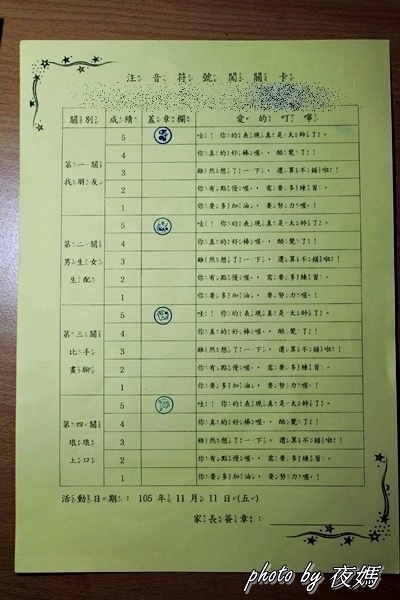 注音符號闖關卡
關別 成績 蓋章欄 愛的叮嚀
第一關 找朋友
5 哇!你的表現真是太帥了。
4 你真的好棒喔,酷斃了!
3 雖然想了一下,還算不錯啦!
2 你有點慢喔,需要多練習。
1 你要多加油,要努力喔!
第二關 男生女生配
5 哇!你的表現真是太帥了。
4 你真的好棒喔,酷斃了!
3 雖然想了一下,還算不錯啦!
2 你有點慢喔,需要多練習。
1 你要多加油,要努力喔!
第三關 比手畫腳
5 哇!你的表現真是太帥了。
4 你真的好棒喔,酷斃了!
3 雖然想了一下,還算不錯啦!
2 你有點慢喔,需要多練習。
1 你要多加油,要努力喔!
第四關 琅琅上口
5 哇!你的表現真是太帥了。
4 你真的好棒喔,酷斃了!
3 雖然想了一下,還算不錯啦!
2 你有點慢喔,需要多練習。
1 你要多加油,要努力喔!
活動日期:105 年 11 月 11 日(五)
家長簽章:
photo by 夜媽